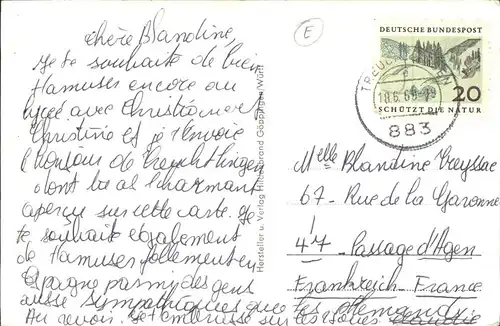 chère Blandine,
Je te souhaite de bien
t'amuser encore au
lycée avec Christian et
Christine et je t'envoie
le bonjour de Treuchtlingen
dont tu as l'charmant
aperçu sur cette carte. Je
te souhaite également
de t'amuser follement en
Espagne parmi des gens
aussi sympathiques que les allemands
Au revoir. Je t'embrasse sur les
Hersteller u. Verlag Hildebrand Göppingen/Württ
E
DEUTSCHE BUNDESPOST
20
SCHÜTZT DIE NATUR
18.6.69-19
883
Melle Blandine Veyssac
67 - Rue de la Garonne
47 - Passage d'Agen
Frankreich - France